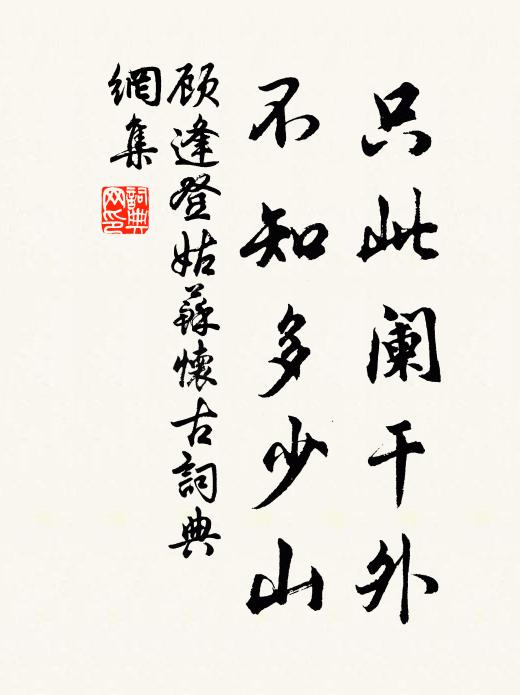 只此阑干外
不知多少山
顾逢登姑蘇懷古詞典
網集
詞典
网印